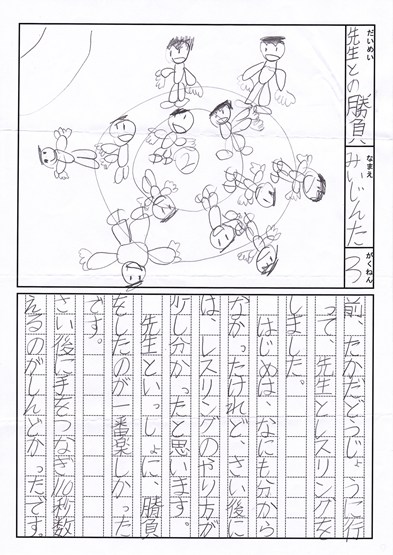 だいめい
先生との勝負
なまえ
みいじんた
がくねん
3
2
前、たかだどうじょうに行
って、先生とレスリングを
しました。
はじめは、なにも分から
なかったけれど、さい後に
は、レスリングのやり方が
少し分かったと思います。
先生といっしょに、勝負
をしたのが一番楽しかった
です。
さい後に手をつなぎ110秒数
えるのがしんどかったです。